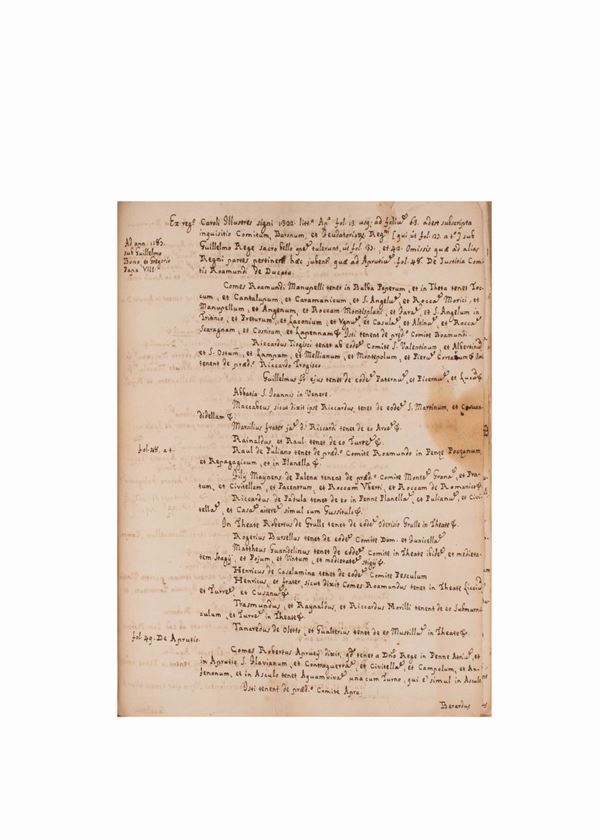 Ex reg.º Caroli Illustris signi 1322. litt.ª A. fol. 13. usq; ad foliu 63. adest subscripta
inquisitio Comitum, Baronum, et Feudatarior Regni qui ut fol. 23. a t.º sub
Ad ann. 1187.
sub Guillelmo
Bono et Gregorio
Papa VIII.
Guillelmo Rege sacro bello opē tulerunt, ut fol. 33. et 42. Omissis quæ ad alias
Regni partes pertinent hæc jubent quæ ad Aprutiū. fol. 48. De Justitia Comi-
tis Roamundi de Ducatu.
Comes Roamundi Manupelli tenet in Bulba Peperum, et in Theta tenet Toc-
cum, et Cantalupum, et Caramanicum, et S. Angelū, et Roccā Morici, et
Manupellum, et Angenum, et Roccam Montisplani, et Tara, et S. Angelum in
et Preturum, et Laconium, et Venu, et Casulā, et Alkinū, et Rocca
Scaragnam, et Cosnirum, et Lapennam &. Isti tenent de præd.º Comite Roamundi.
Riccardus Trogisij tenet ab eodē Comite S. Valentinum, et
et S. Ostum, et Lampam, et Mellianum, et Montepolum, et Pietrā &. Isti
tenent de præd.º Riccardo Trogisio.
Guillelmus ejus tenet de eodē Paternū, et Picernū, et
Abbatia S. Joannis in Venere.
Maccabeus sicut dixit ipse Riccardus, tenet de eodē S. Martinum, et
didellam &.
Marsilius frater ja.ᵗ d. Riccardi tenet de eo Arcē &.
Rainaldus, et Raul tenet de eo Turrē &.
fol. 48. a t.
Raul de Puliano tenet de præd.º Comite Roamundo in Penne
et Repagagicum, et in Planella &.
Filij Maynens de Palena tenent de præd.º Comite Monte Grana, et Pra-
tum, et Civitellam, et Pacentrum, et Roccam Uberti, et Roccam de Romanico &.
Riccardus de Patula tenet de eo in Penne Planella, et Pulianū, et Civi-
tellā, et Casā simul cum Gussitulo &.
In Theate Robertus de Grulle tenet de eodē Oderisio Grulle in Theate &.
Rogerius Bursellus tenet de eodē Comite Dom. et Gunisella
Mattheus Guandelinus tenet de eodē Comite in Theate ibidē, et medieta-
tem Stagij, et Pojum, et Vintum, et medietatē Stigij &.
Henricus de Casalamina tenet de eodē Comite Pesculum
Henricus, et frater sicut dixit Comes Roamundus tenet in Theate
et Turrē, et Cusanū &.
Trasmundus, et Raynaldus, et Riccardus Morilli tenent de eo Submunti-
culum, et Turrē in Theate &.
Tancredus de Oletto, et Gualterius tenet de eo Mustillū in Theate &.
fol. 49. De Aprutio.
Comes Robertus Aprutij dixit, q. tenet a Dno Rege in Penne Atriū, et
in Aprutio S. Flavianum, et Controguerrā, et Civitellā, et Campalum, et An-
fenonum, et in Asculo tenet Aquamvivā una cum Turno, qui ē simul in Asculo
Isti tenent de præd.º Comite Apru.
Berardus